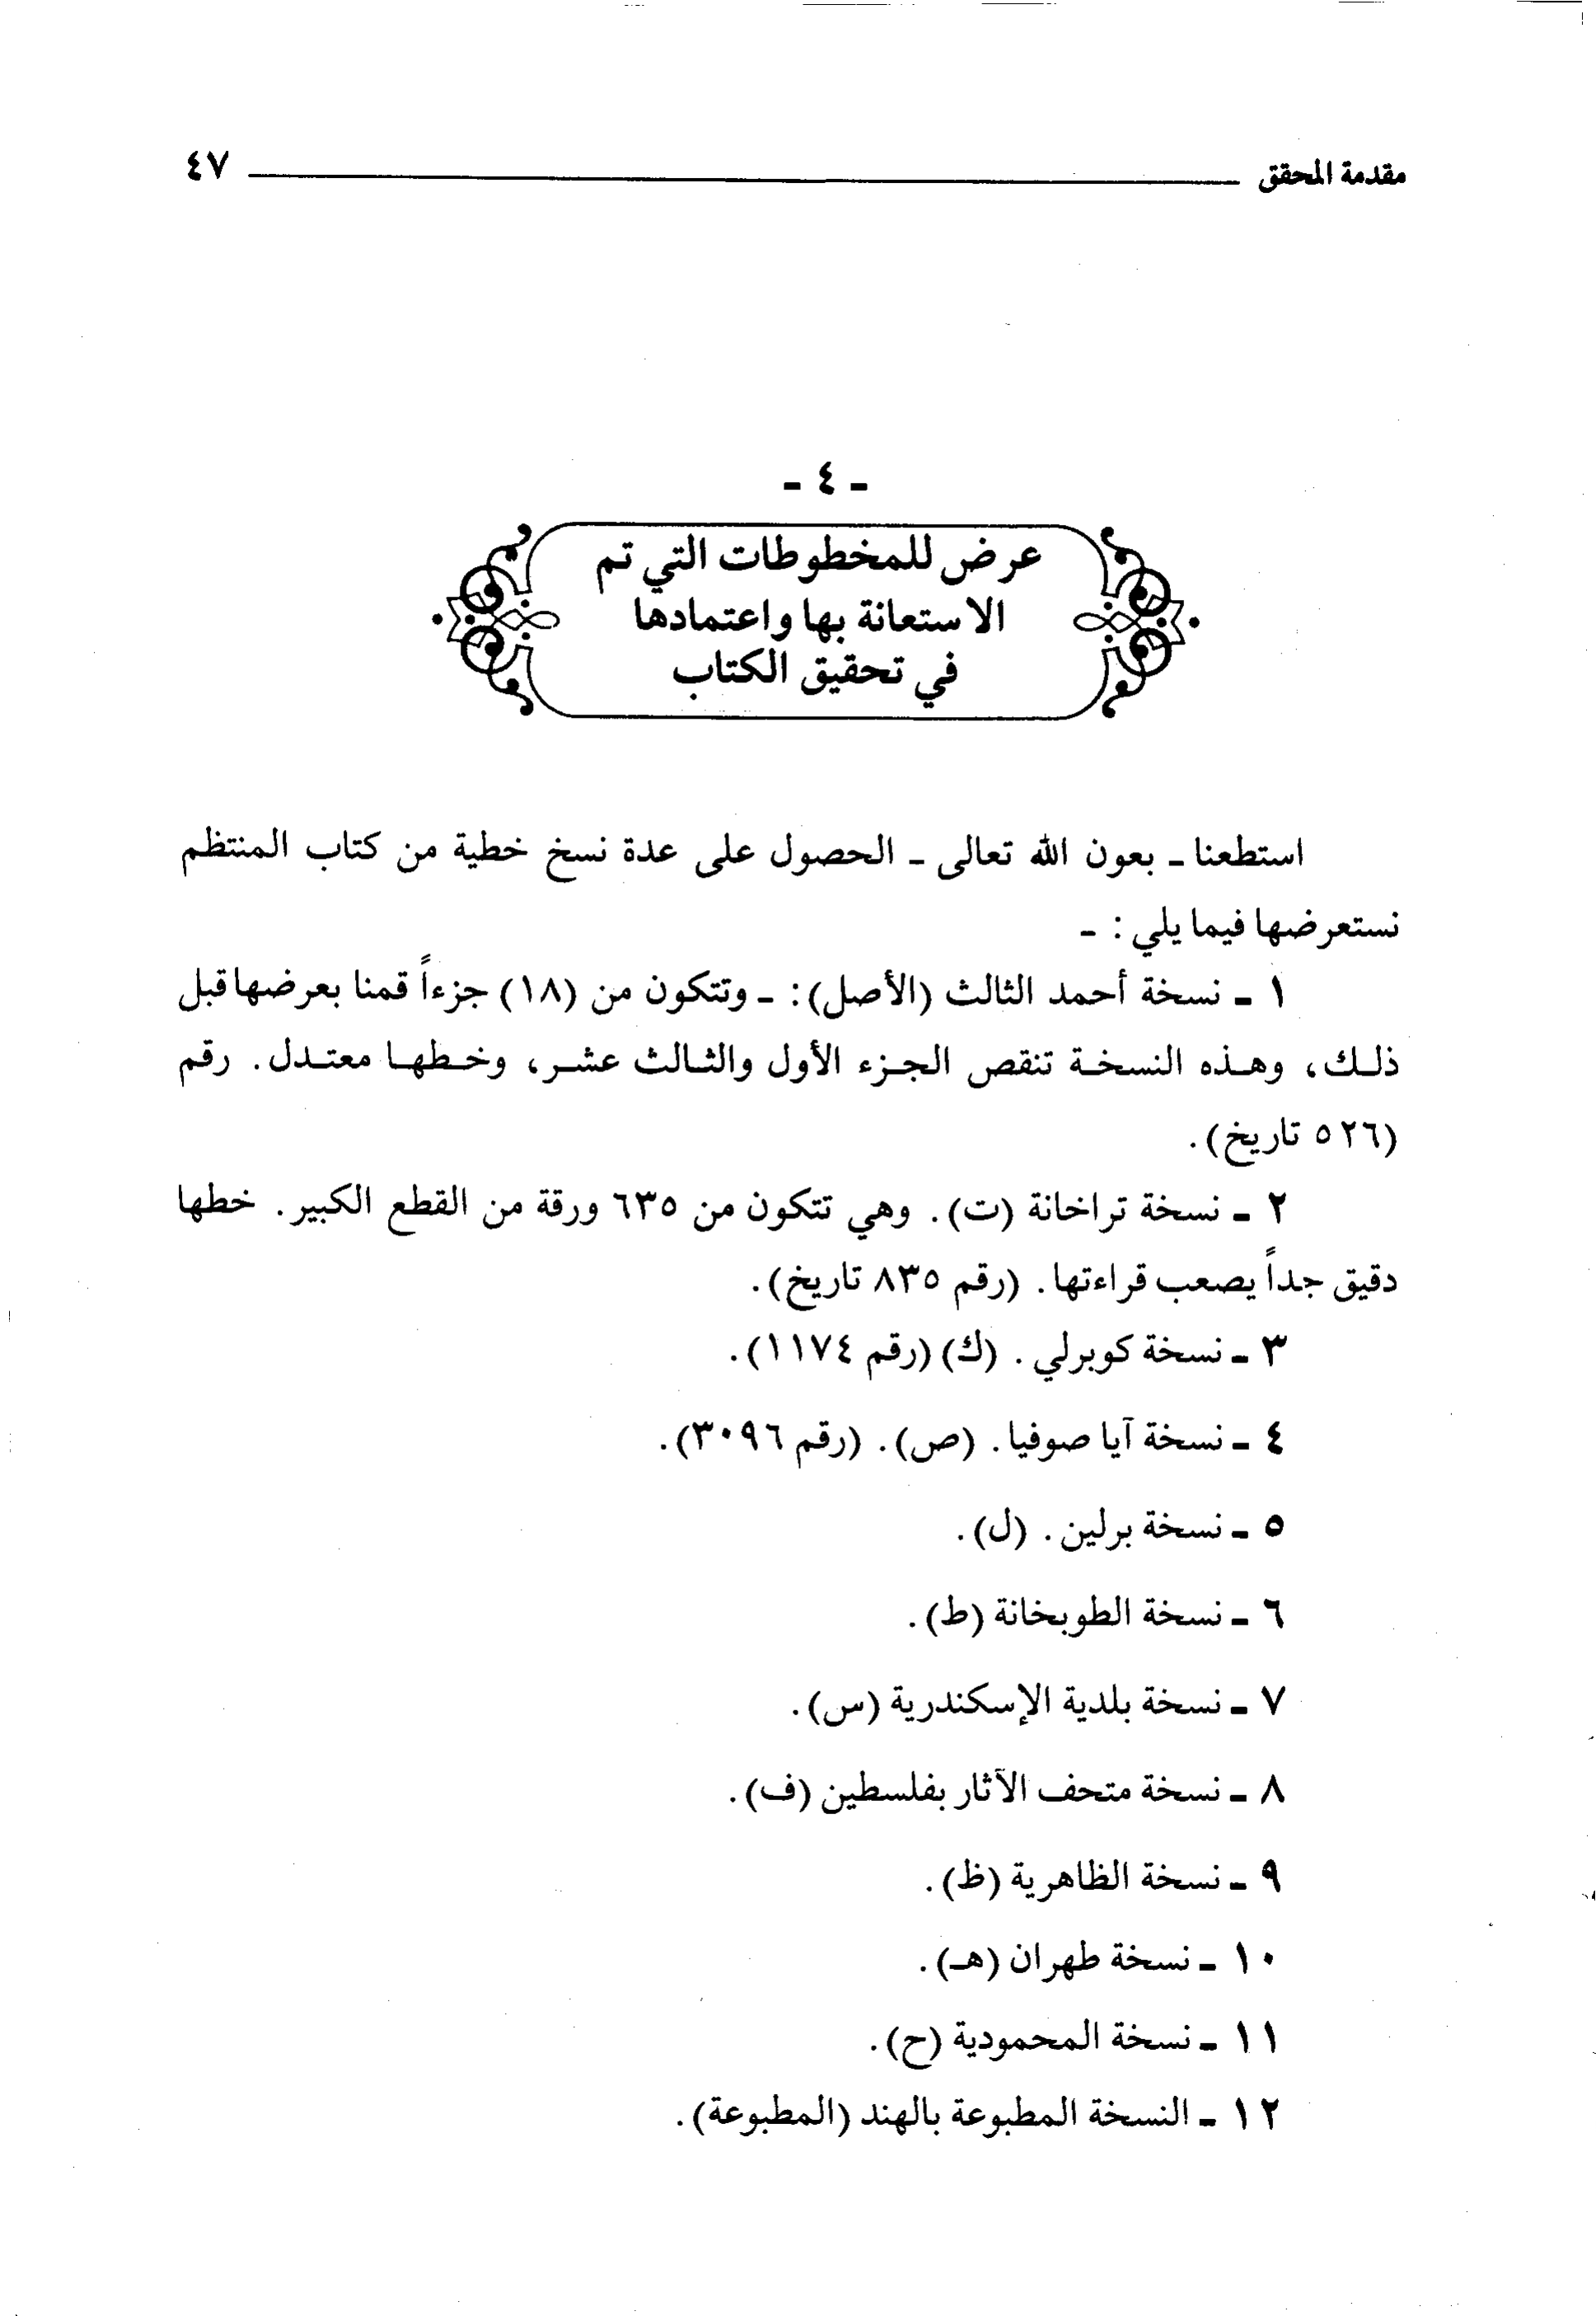 مقدمة المحقق ٤٧
- ٤ -
عرض للمخطوطات التي تم
الاستعانة بها واعتمادها
في تحقيق الكتاب
استطعنا - بعون الله تعالى - الحصول على عدة نسخ خطية من كتاب المنتظم
نستعرضها فيما يلي : -
١ - نسخة أحمد الثالث (الأصل): - وتتكون من (١٨) جزءاً قمنا بعرضها قبل
ذلك، وهذه النسخة تنقص الجزء الأول والثالث عشر، وخطها معتدل. رقم
(٥٢٦ تاريخ).
٢ - نسخة تراخانة (ت). وهي تتكون من ٦٣٥ ورقة من القطع الكبير. خطها
دقيق جداً يصعب قراءتها. (رقم ٨٣٥ تاريخ).
٣ - نسخة كوبرلي. (ك) (رقم ١١٧٤).
٤ - نسخة آيا صوفيا. (ص). (رقم ٣٠٩٦).
٥ - نسخة برلين. (ل).
٦ - نسخة الطوبخانة (ط).
٧ - نسخة بلدية الإسكندرية (س).
٨ - نسخة متحف الآثار بفلسطين (ف).
٩ - نسخة الظاهرية (ظ).
١٠ - نسخة طهران (هـ).
١١ - نسخة المحمودية (ح).
١٢ - النسخة المطبوعة بالهند (المطبوعة).